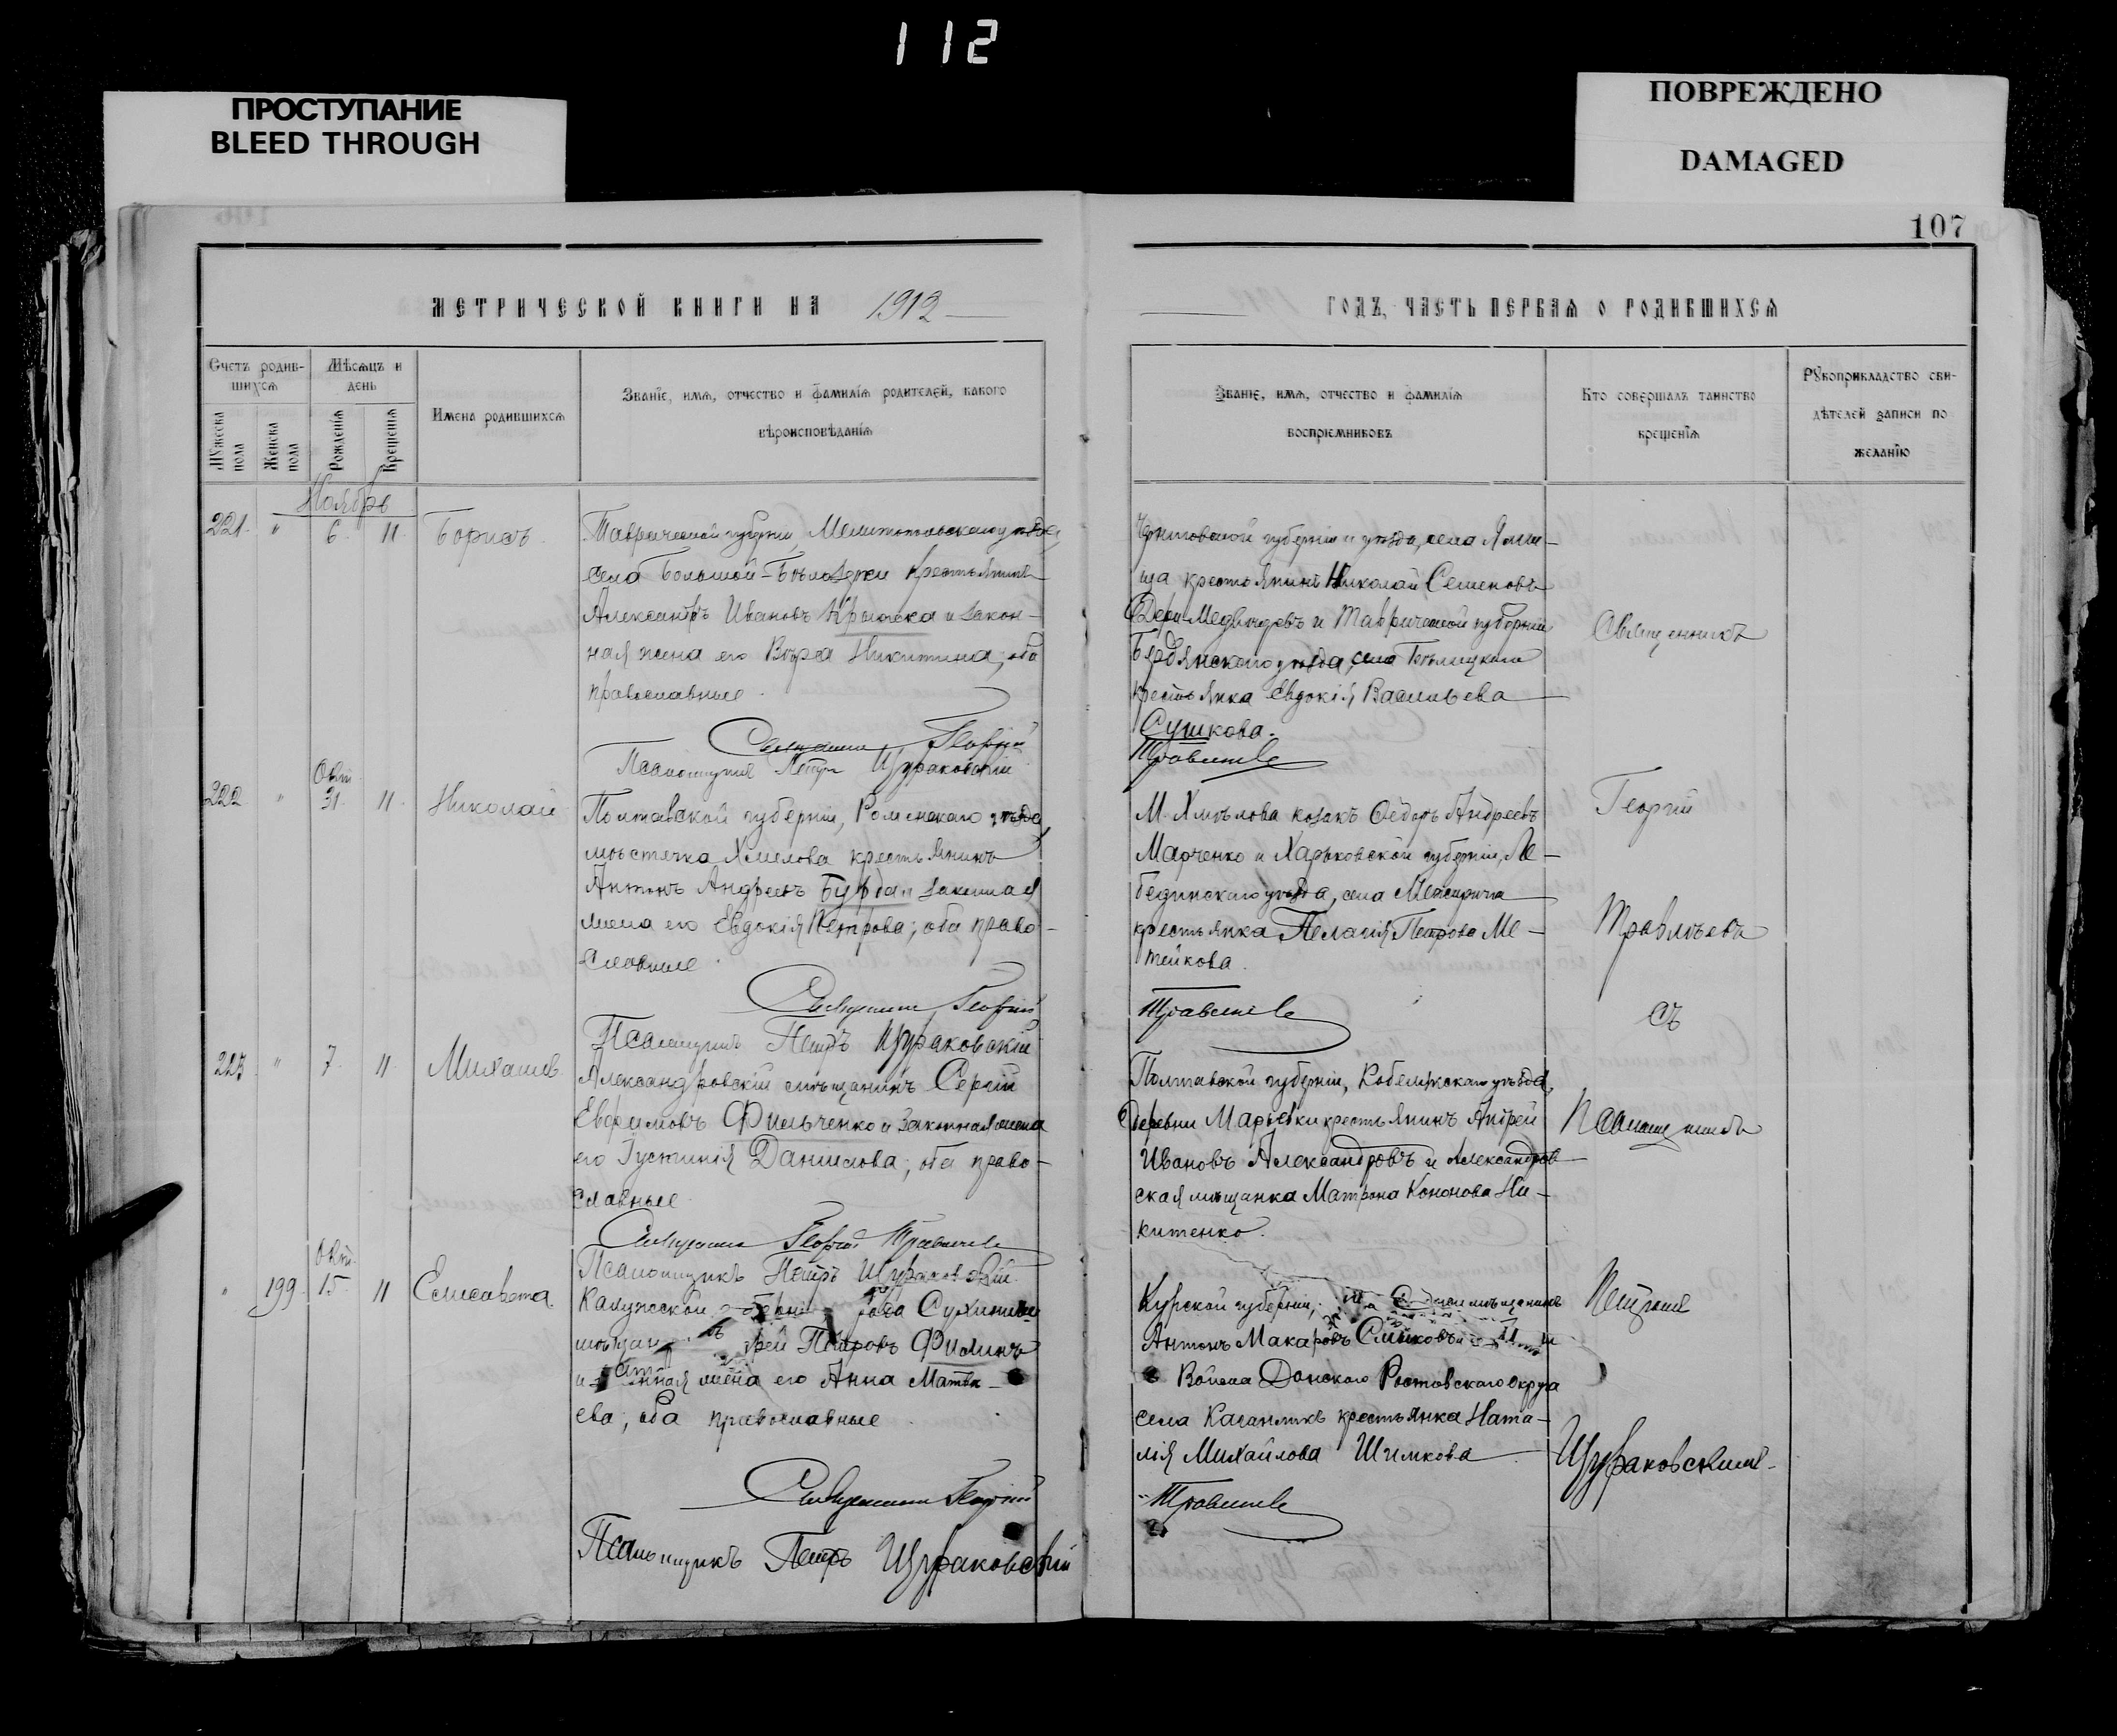 112
ПРОСТУПАНИЕ
BLEED THROUGH
ПОВРЕЖДЕНО
DAMAGED
107
МЕТРИЧЕСКОЙ КНИГИ НА 1912
ГОДЪ, ЧАСТЬ ПЕРВАЯ О РОДИВШИХСЯ
Счетъ родив-
шихся
Мужеска пола
Женска пола
Мѣсяцъ и
день
Рожденія
Крещенія
Имена родившихся
Званіе, имя, отчество и фамилія родителей, какого
вѣроисповѣданія
Званіе, имя, отчество и фамилія
воспріемниковъ
Кто совершалъ таинство
крещенія
Рукоприкладство сви-
дѣтелей записи по
желанію
Ноябрь
221. " 6. 11. Борисъ.
Таврической губерніи, Мелитопольскаго уѣзда,
села Большой-Бѣлозерки крестьянинъ
Александръ Ивановъ и закон-
ная жена его Вѣра Никитина, оба
православные.
Священникъ Георгій
Псаломщикъ Петръ Щураковскій
Черниговской губерніи и уѣзда, села
крестьянинъ Николай Семеновъ
и Таврической губерніи
Бердянскаго уѣзда, села
крестьянка Евдокія Васильева
Сушкова.
Травлѣевъ
Окт.
222 " 31. 11. Николай
Полтавской губерніи, Роменскаго уѣзда,
мѣстечка Хмелова крестьянинъ
Антонъ Андреевъ Бурда и законная
жена его Евдокія Петрова; оба право-
славные.
Священникъ Георгій
Псаломщикъ Петръ Щураковскій
М. Хмѣлова козакъ Ѳедоръ Андреевъ
Марченко и Харьковской губерніи, Ле-
бединскаго уѣзда, села Межирича
крестьянка Пелагія Петрова Ме-
тейкова.
Травлѣевъ
223 " 7. 11. Михаилъ
Александровскій мѣщанинъ Сергій
Евфимовъ Фильченко и законная жена
его Іустинія Данилова; оба право-
славные.
Священникъ Георгій Травлѣевъ
Псаломщикъ Петръ Щураковскій.
Полтавской губерніи, Кобелякскаго уѣзда,
деревни Марьевки крестьянинъ Андрей
Ивановъ Александровъ и Александров-
ская мѣщанка Матрона Кононова Ни-
китенко.
Окт.
" 199. 15. 11 Елисавета.
Калужской Сухиничи
Петровъ Филинъ
и жена его Анна Матвѣ-
ева; оба православные.
Священникъ Георгій
Псаломщикъ Петръ Щураковскій
Курской губерніи, мѣщанинъ
Антонъ Макаровъ
Войска Донского Ростовскаго округа
села Кагальникъ крестьянка Ната-
лія Михайлова Шимкова
Травлѣевъ
Священникъ
Георгій
Травлѣевъ
съ
Псаломщикомъ
Петромъ
Щураковскимъ.